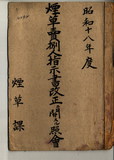 昭和十八年度
煙草賣捌人指示書改正ニ関スル照會
煙草課